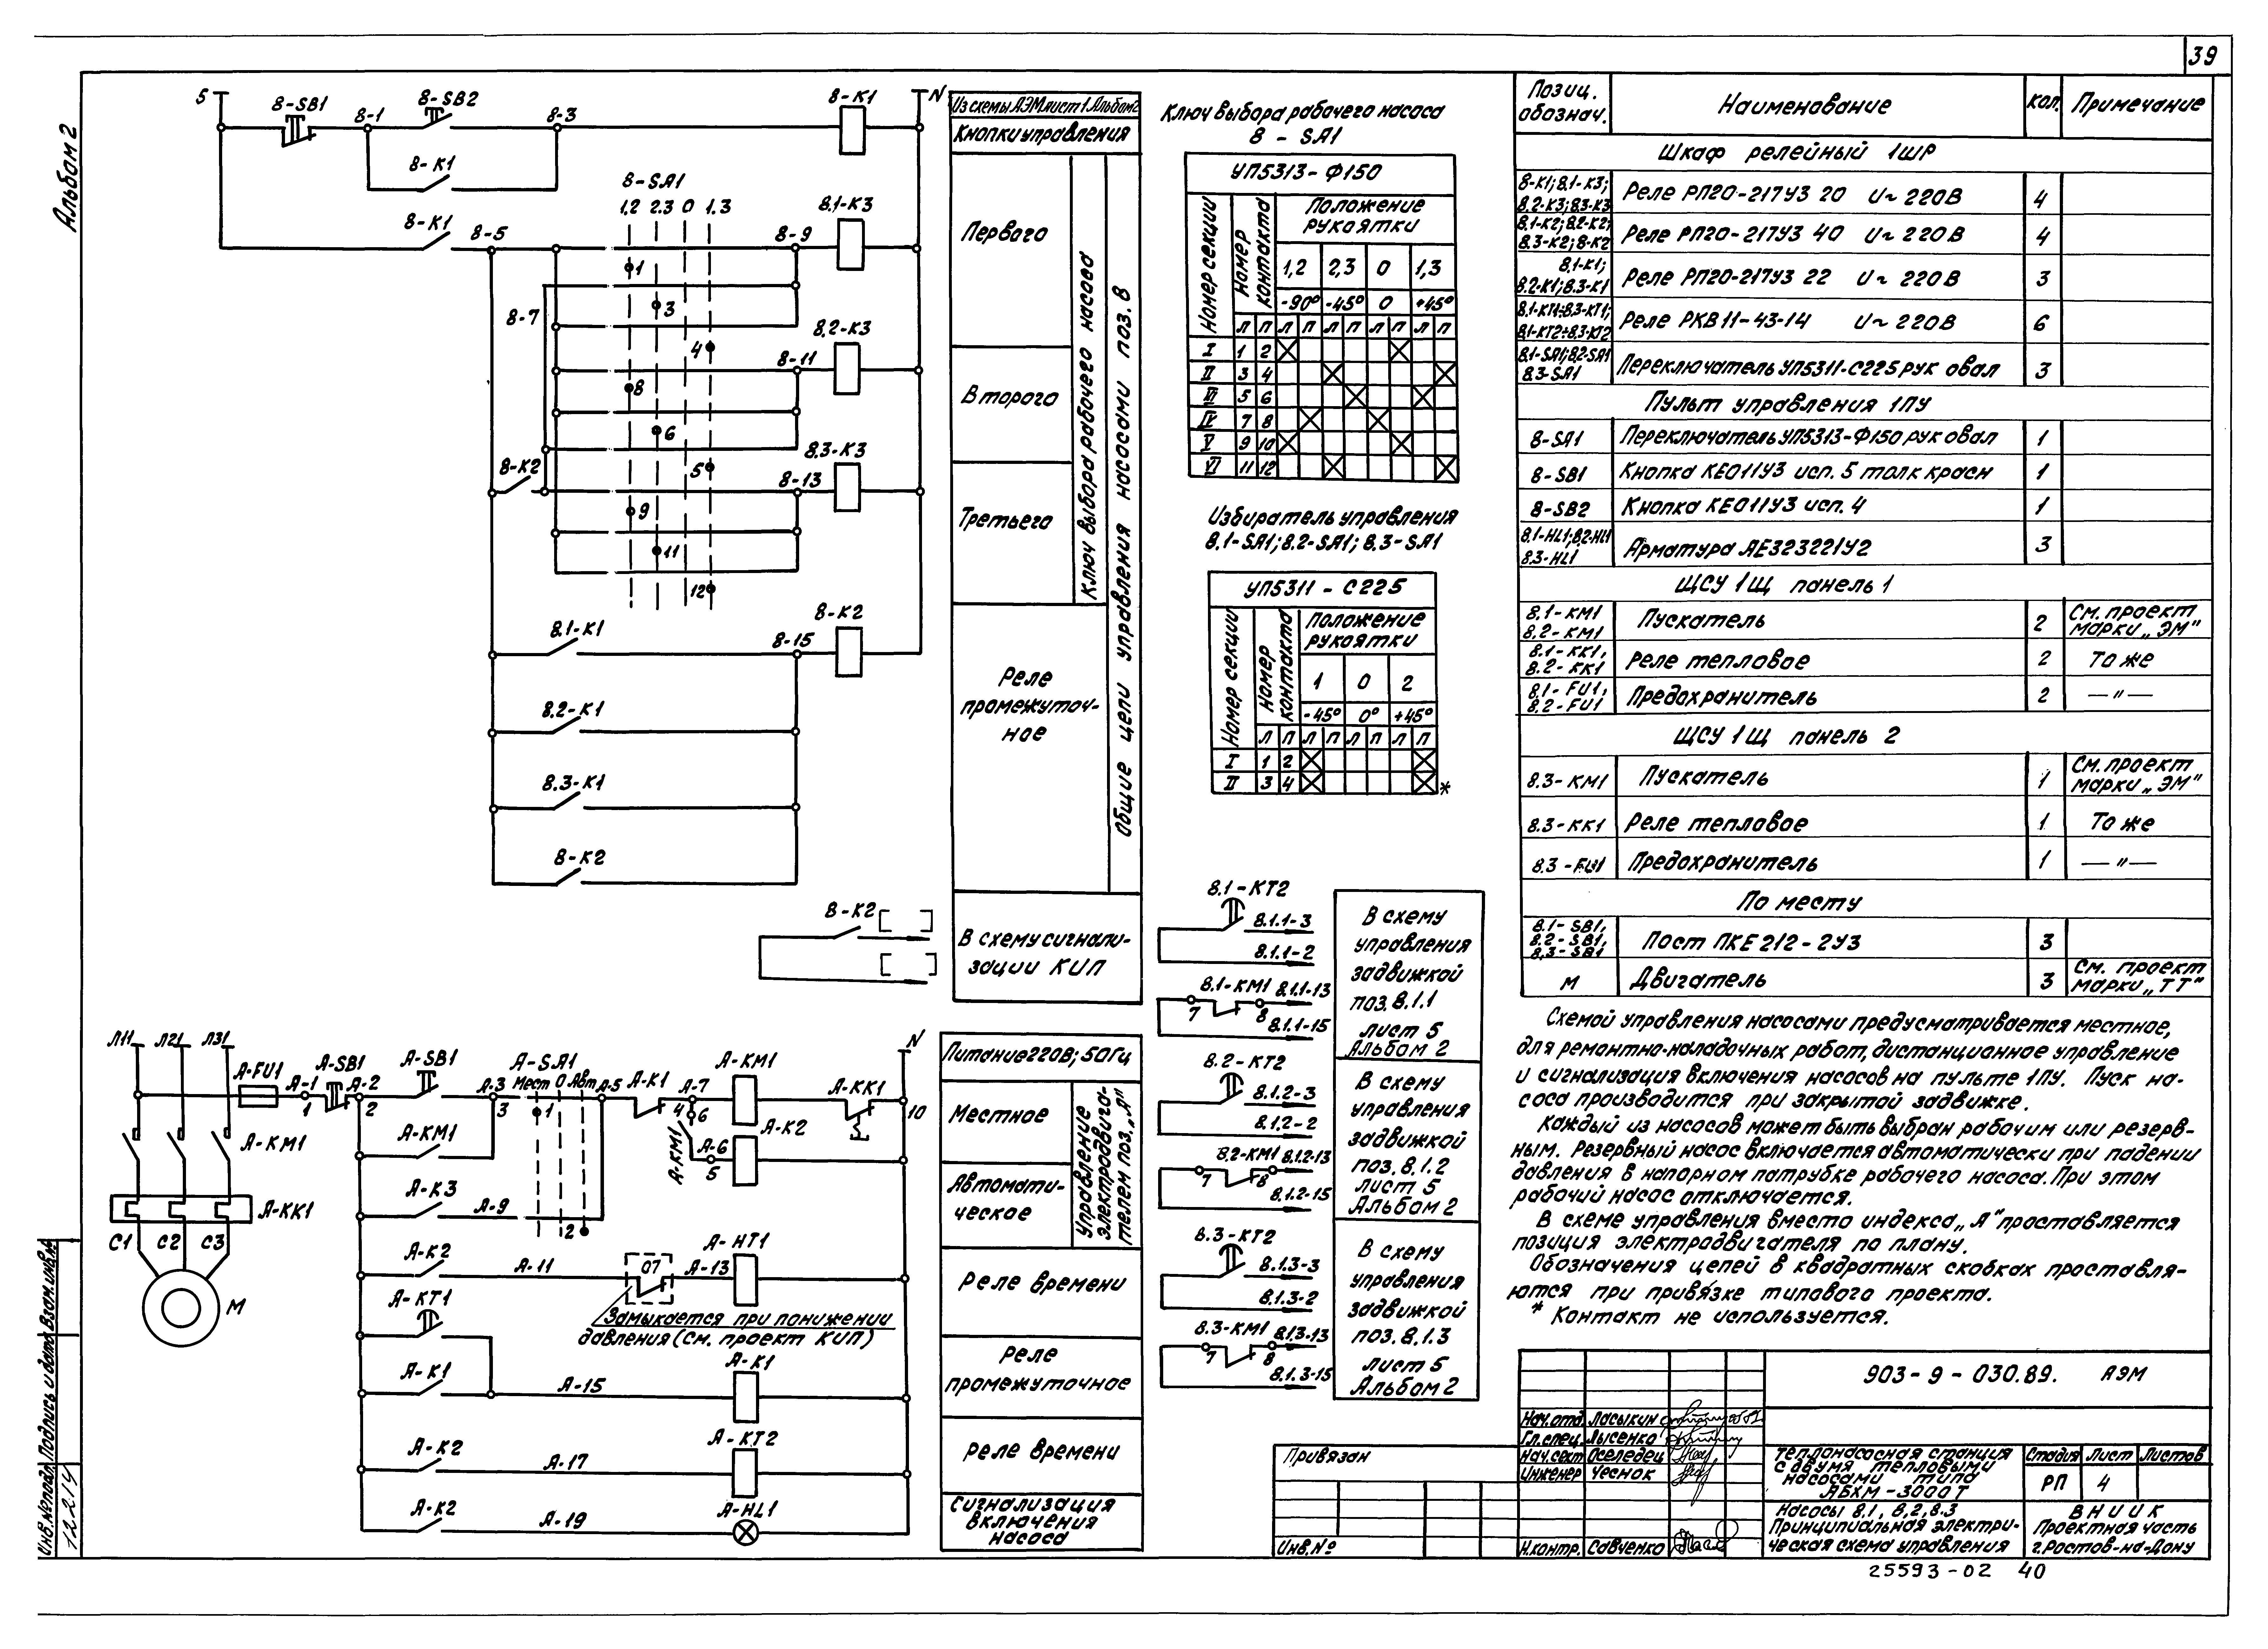 39
Альбом 2
5
8-SB1
8-1
8-SB2
8-3
8-K1
N
8-K1
8-SA1
1,2 2.3 0 1.3
8-K1
8-5
8-9
8.1-K3
1
3
8-7
4
8-11
8.2-K3
8
6
5
8-K2
8-13
8.3-K3
9
11
12
8.1-K1
8-15
8-K2
8.2-K1
8.3-K1
8-K2
8-K2
Из схемы АЭМ лист 1. Альбом 2
Кнопки управления
Первого
Второго
Третьего
Ключ выбора рабочего насоса
Общие цепи управления насосами поз. 8
Реле
промежуточ-
ное
В схему сигнали-
зации КИП
Л11 Л21 Л31
А-FU1
А-1
1
А-SB1
А-2
2
А-SB1
А-3
3
А-SA1
Мест 0 Авт
1
А-5
А-K1
А-7
4
6
А-KM1
А-KK1
N
10
А-KM1
А-KM1
А-KM1
А-6
5
А-K2
А-K3
А-9
2
А-KK1
С1 С2 С3
М
А-K2
А-11
07
А-13
А-НТ1
Замыкается при понижении
давления (См. проект КИП)
А-KT1
А-K1
А-15
А-K1
А-K2
А-17
А-KT2
А-K2
А-19
А-HL1
Питание 220В; 50Гц
Местное
Автомати-
ческое
Управление
электродвига-
телем поз. „А"
Реле времени
Реле
промежуточное
Реле времени
Сигнализация
включения
насоса
Ключ выбора рабочего насоса
8 - SA1
УП5313-Ф150
Номер секции
Номер контакта
Положение
рукоятки
1,2 2,3 0 1,3
-90° -45° 0 +45°
Л П Л П Л П Л П Л П
I 1 2
II 3 4
III 5 6
IV 7 8
V 9 10
VI 11 12
Избиратель управления
8.1-SA1; 8.2-SA1; 8.3-SA1
УП5311 - С225
Номер секции
Номер контакта
Положение
рукоятки
1 0 2
-45° 0° +45°
Л П Л П Л П Л П
I 1 2
II 3 4
*
8.1-KT2
8.1.1-3
8.1.1-2
8.1-KM1 8.1.1-13
7 8
8.1.1-15
В схему
управления
задвижкой
поз. 8.1.1
лист 5
Альбом 2
8.2-KT2
8.1.2-3
8.1.2-2
8.2-KM1 8.1.2-13
7 8
8.1.2-15
В схему
управления
задвижкой
поз. 8.1.2
лист 5
Альбом 2
8.3-KT2
8.1.3-3
8.1.3-2
8.3-KM1 8.1.3-13
7 8
8.1.3-15
В схему
управления
задвижкой
поз. 8.1.3
лист 5
Альбом 2
Позиц. обознач. Наименование кол. Примечание
Шкаф релейный 1ШР
8-K1; 8.1-K3; 8.2-K3; 8.3-K3 Реле РП20-217У3 20 U~220В 4
8.1-K2; 8.2-K2; 8.3-K2; 8-K2 Реле РП20-217У3 40 U~220В 4
8.1-K1; 8.2-K1; 8.3-K1 Реле РП20-217У3 22 U~220В 3
8.1-KT1÷8.3-KT1; 8.1-KT2÷8.3-KT2 Реле РКВ11-43-14 U~220В 6
8.1-SA1; 8.2-SA1 8.3-SA1 Переключатель УП5311-С225 рук овал 3
Пульт управления 1ПУ
8-SA1 Переключатель УП5313-Ф150 рук овал 1
8-SB1 Кнопка КЕ011У3 исп. 5 толк красн 1
8-SB2 Кнопка КЕ011У3 исп. 4 1
8.1-HL1; 8.2-HL1 8.3-HL1 Арматура АЕ323221У2 3
ЩСУ 1Щ панель 1
8.1-KM1 8.2-KM1 Пускатель 2 См. проект марки „ЭМ"
8.1-KK1, 8.2-KK1 Реле тепловое 2 То же
8.1-FU1, 8.2-FU1 Предохранитель 2 —"—
ЩСУ 1Щ панель 2
8.3-KM1 Пускатель 1 См. проект марки „ЭМ"
8.3-KK1 Реле тепловое 1 То же
8.3-FU1 Предохранитель 1 —"—
По месту
8.1-SB1, 8.2-SB1, 8.3-SB1 Пост ПКЕ212-2У3 3
М Двигатель 3 См. проект марки „ТТ"
Схемой управления насосами предусматривается местное,
для ремонтно-наладочных работ, дистанционное управление
и сигнализация включения насосов на пульте 1ПУ. Пуск на-
соса производится при закрытой задвижке.
Каждый из насосов может быть выбран рабочим или резерв-
ным. Резервный насос включается автоматически при падении
давления в напорном патрубке рабочего насоса. При этом
рабочий насос отключается.
В схеме управления вместо индекса „А" проставляется
позиция электродвигателя по плану.
Обозначения цепей в квадратных скобках проставля-
ются при привязке типового проекта.
* Контакт не используется.
903-9-030.89. АЭМ
Нач.отд. Ласыкин
Гл.спец. Лысенко
Нач.сект Оселедец
Инженер Чеснок
Н.контр. Савченко
Теплонасосная станция
с двумя тепловыми
насосами типа
АБХМ-3000Т
Стадия Лист Листов
РП 4
Насосы 8.1, 8,2,8.3
Принципиальная электри-
ческая схема управления
ВНИИК
Проектная часть
г.Ростов-на-Дону
Привязан
Инв.№
Инв.№ подл. Подпись и дата Взам.инв.№
25593-02 40